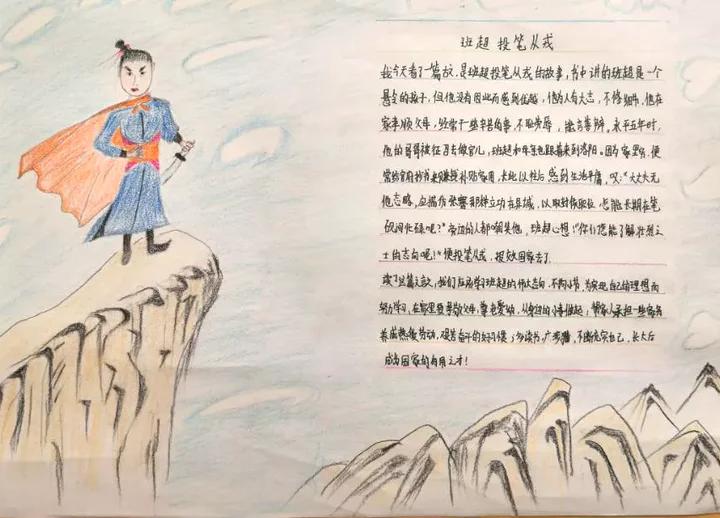 班超 投笔从戎
我今天看了一篇故,是班超投笔从戎的故事,书中讲的班超是一个
县令的孩子,但他没有因此而感到优越,他为人有大志,不修细节,他在
家孝顺父母,经常干些辛苦的事,不耻劳辱,永平五年时,
他的哥哥被征召去做官儿,班超和母亲也跟着来到洛阳,因为家里穷,便
常给官府抄书来赚钱补贴家用,感到生活平庸,叹:"大丈夫无
他志略,立功在异域,以取封侯,怎能长期在笔
砚间忙碌呢?"旁边的人都嘲笑他,班超心想:"你们怎能了解壮烈之
士的志向呢!"便投笔从戎,报效国家去了。
读了这篇文章,我们应该学习班超的伟大志向,不拘小节,为实现自己的理想而
努力学习,在家里要孝敬父母,从身边的小事做起,帮家人承担一些家务
养成热爱劳动,艰苦奋斗的好习惯,多读书,不断充实自己,长大后
成为国家的有用之才!